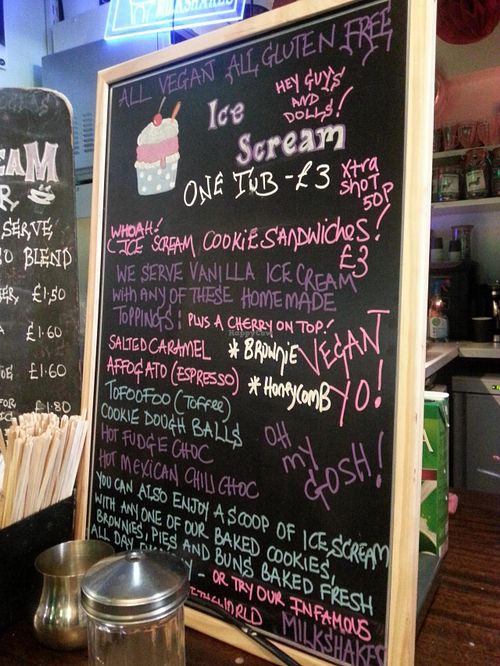 MILKSHAKES
ALL VEGAN ALL GLUTEN FREE
HEY GUYS
AND
DOLLS!
Ice
Scream
ONE TUB - £3
Xtra
SHOT
50P
WHOAH!
ICE SCREAM COOKIE SANDWICHES!
£3
WE SERVE VANILLA ICE CREAM
WITH ANY OF THESE HOMEMADE
TOPPINGS: PLUS A CHERRY ON TOP!
SALTED CARAMEL
* BROWNIE
AFFOGATO (ESPRESSO)
* HONEYCOMB
VEGAN
YO!
TOFOOFOO (TOFFEE)
COOKIE DOUGH BALLS
HOT FUDGE CHOC
HOT MEXICAN CHILI CHOC
OH
MY
GOSH!
YOU CAN ALSO ENJOY A SCOOP OF ICE SCREAM
WITH ANY ONE OF OUR BAKED COOKIES,
BROWNIES, PIES AND BUNS BAKED FRESH
ALL DAY - OR TRY OUR INFAMOUS
WORLD MILKSHAKES
SERVE
BLEND
£1.50
£1.60
£1.60
FOR £1.80
HappyCow